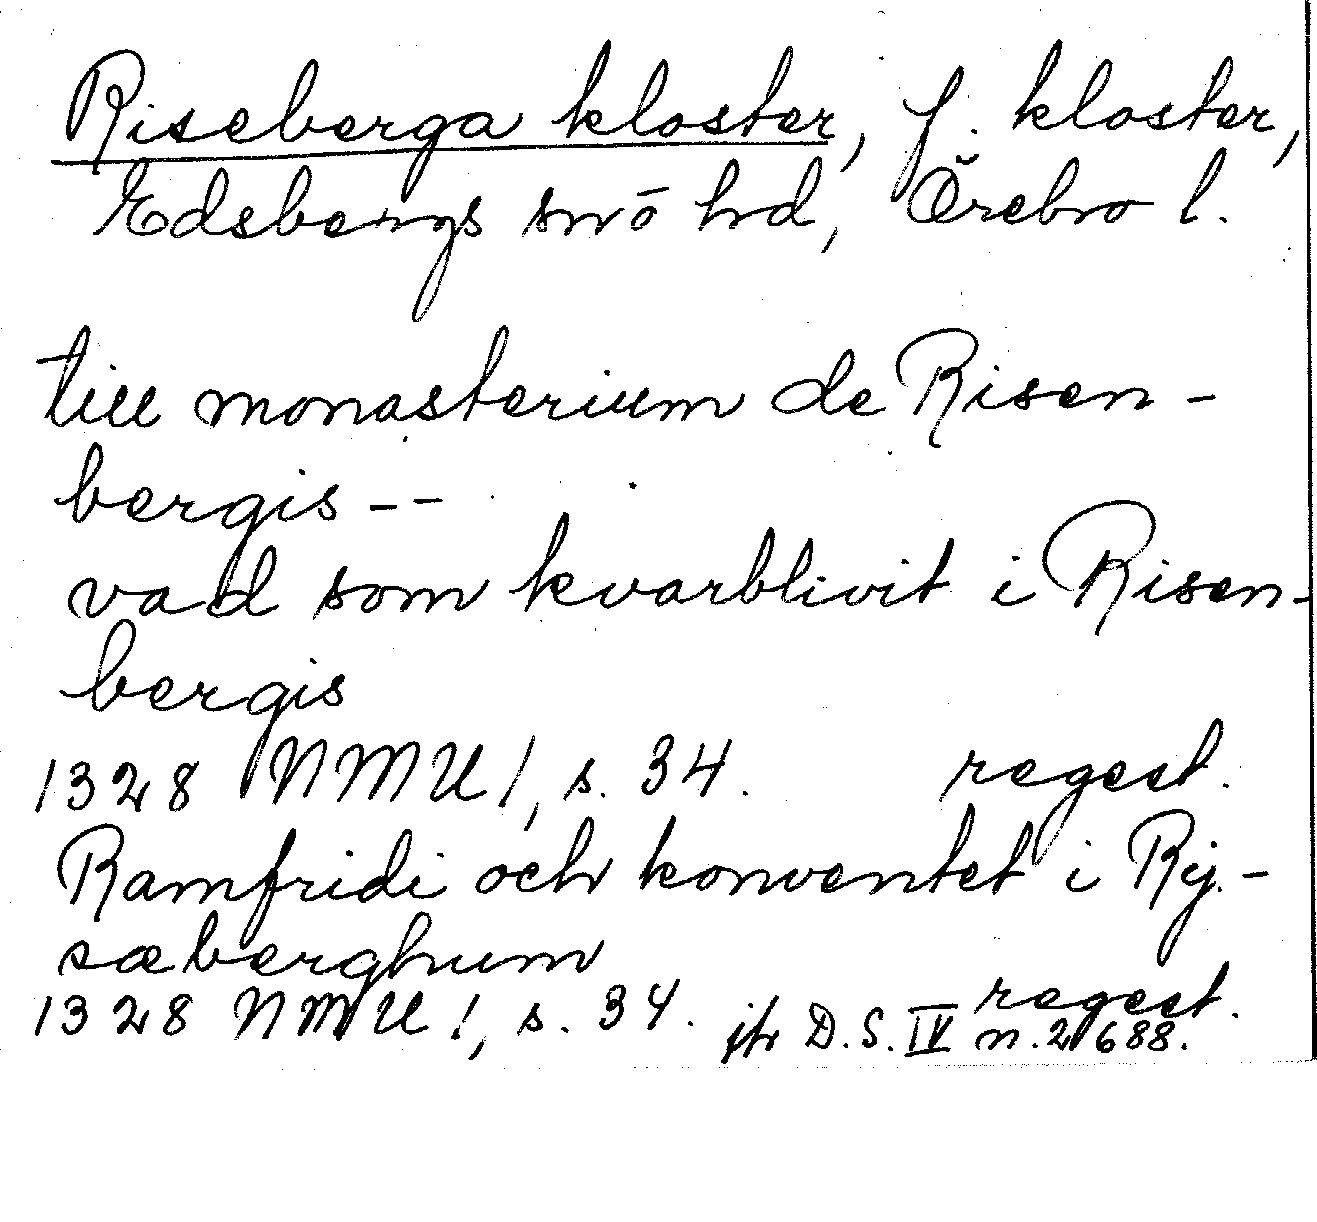 Riseberga kloster, f. kloster,
Edsbergs snö hd, Örebro l.
till monasterium de Risen-
bergis --
vad som kvarblivit i Risen-
bergis
1328 NMU 1, s. 34. regest.
Ramfridi och konventet i Rij-
sæberghum
1328 NMU 1, s. 34. regest.
jfr D.S. IV n. 2688.